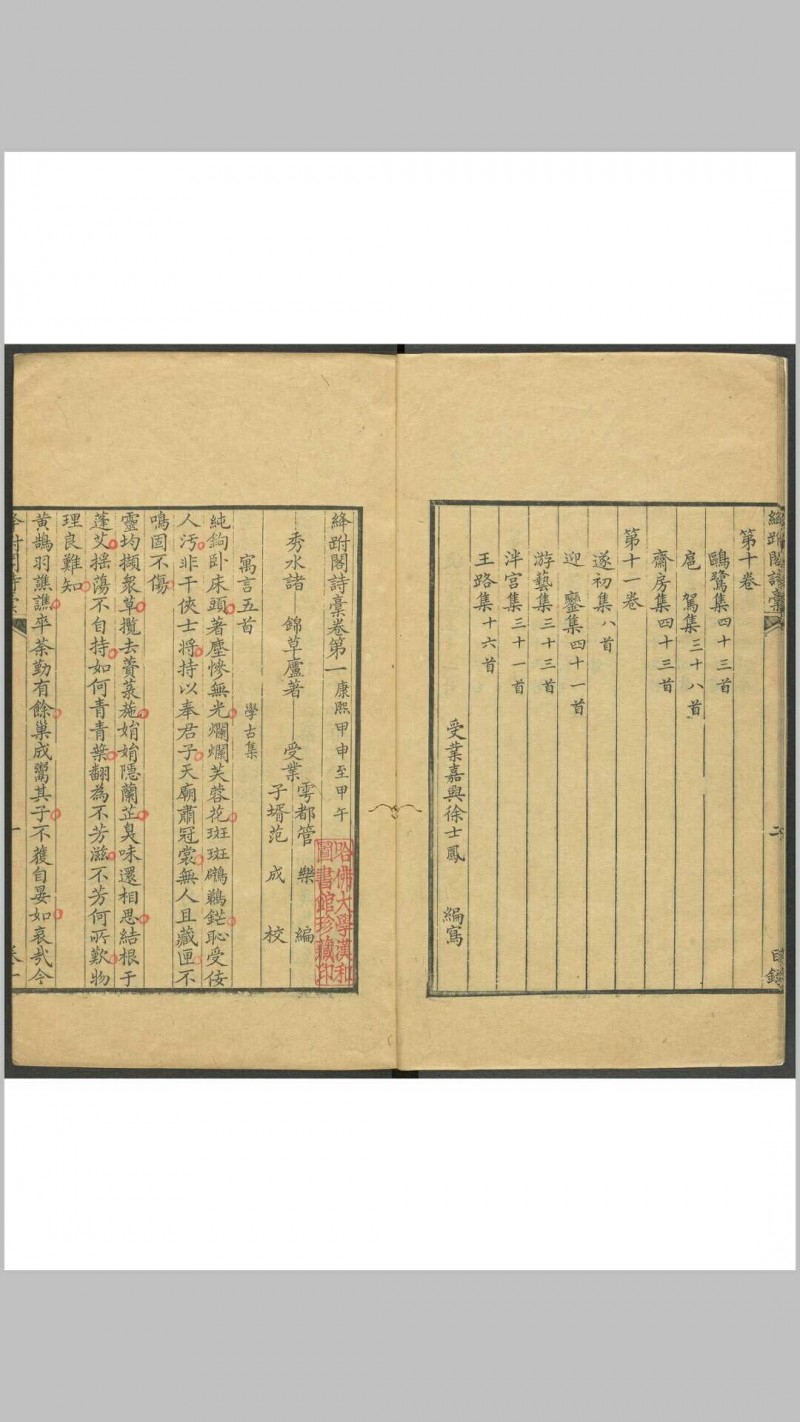 絳跗閣詩稾
第十卷
鷗鷺集四十三首
扈駕集三十八首
齋房集四十三首
第十一卷
遂初集八首
迎鑾集四十一首
游藝集三十三首
泮宮集三十一首
王路集十六首
受業嘉興徐士鳳 編寫
二
目錄
絳跗閣詩稾卷第一 康熙甲申至甲午
秀水諸 錦草廬著 受業雩都管樂編
子壻范成校
哈佛大學漢和圖書館珍藏印
寓言五首 學古集
純鉤卧床頭著塵慘無光爛爛芙蓉花斑斑鸊鵜鋩恥受佞
人汚非干俠士將持以奉君子天廟肅冠裳無人且藏匣不
鳴固不傷
靈均擷衆草攬去薋菉葹娋娋隱蘭芷臭味還相思結根于
蓬艾揺蕩不自持如何青青葉翻為不芳滋不芳何所歎物
理良難知
黄鵠羽譙譙卒荼勤有餘巢成鬻其子不獲自晏如哀哉今
絳跗閣詩稾
卷一
一